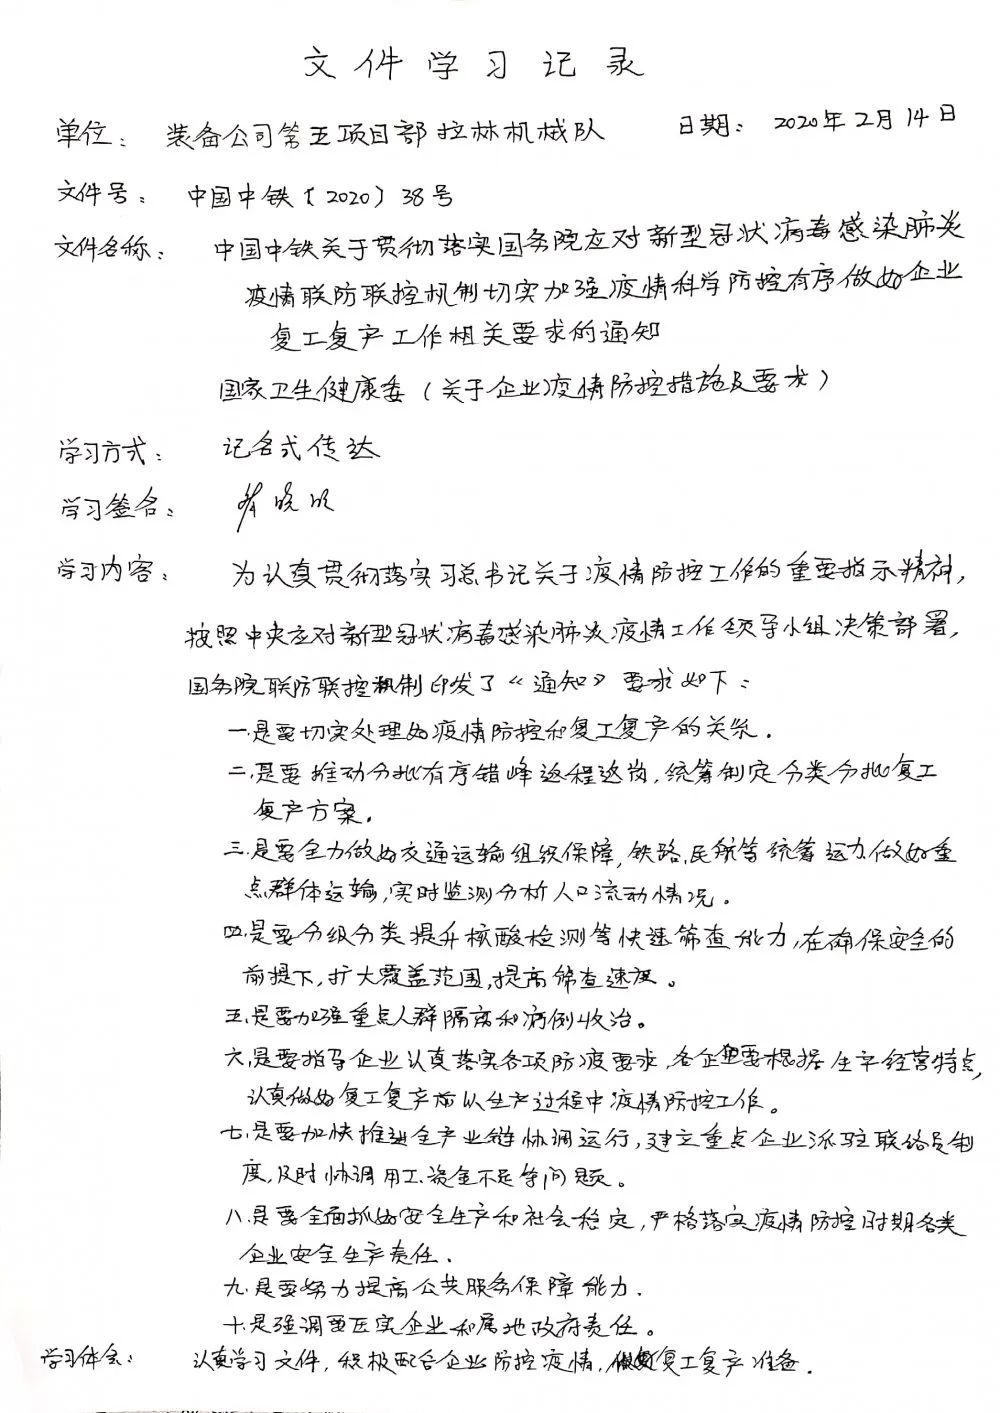 文件学习记录
单位：装备公司第五项目部拉林机械队 日期：2020年2月14日
文件号：中国中铁〔2020〕38号
文件名称：中国中铁关于贯彻落实国务院应对新型冠状病毒感染肺炎
疫情联防联控机制切实加强疫情科学防控有序做好企业
复工复产工作相关要求的通知
国家卫生健康委（关于企业疫情防控措施及要求）
学习方式：记名式传达
学习签名：晓明
学习内容：为认真贯彻落实习总书记关于疫情防控工作的重要指示精神，
按照中央应对新型冠状病毒感染肺炎疫情工作领导小组决策部署，
国务院联防联控机制印发了《通知》要求如下：
一.是要切实处理好疫情防控和复工复产的关系.
二.是要推动分批有序错峰返程返岗，统筹制定分类分批复工
复产方案.
三.是要全力做好交通运输组织保障，铁路、民航等统筹运力做好重
点群体运输，实时监测分析人口流动情况。
四.是要分级分类提升核酸检测等快速筛查能力，在确保安全的
前提下，扩大覆盖范围，提高筛查速度。
五.是要加强重点人群隔离和病例收治。
六.是要指导企业认真落实各项防疫要求，各企业要根据生产经营特点，
认真做好复工复产前以生产过程中疫情防控工作。
七.是要加快推进全产业链协调运行，建立重点企业派驻联络员制
度，及时协调用工、资金不足等问题。
八.是要全面抓好安全生产和社会稳定，严格落实疫情防控时期各类
企业安全生产责任.
九.是要努力提高公共服务保障能力.
十.是强调要压实企业和属地政府责任。
学习体会：认真学习文件，积极配合企业防控疫情，做好复工复产准备.